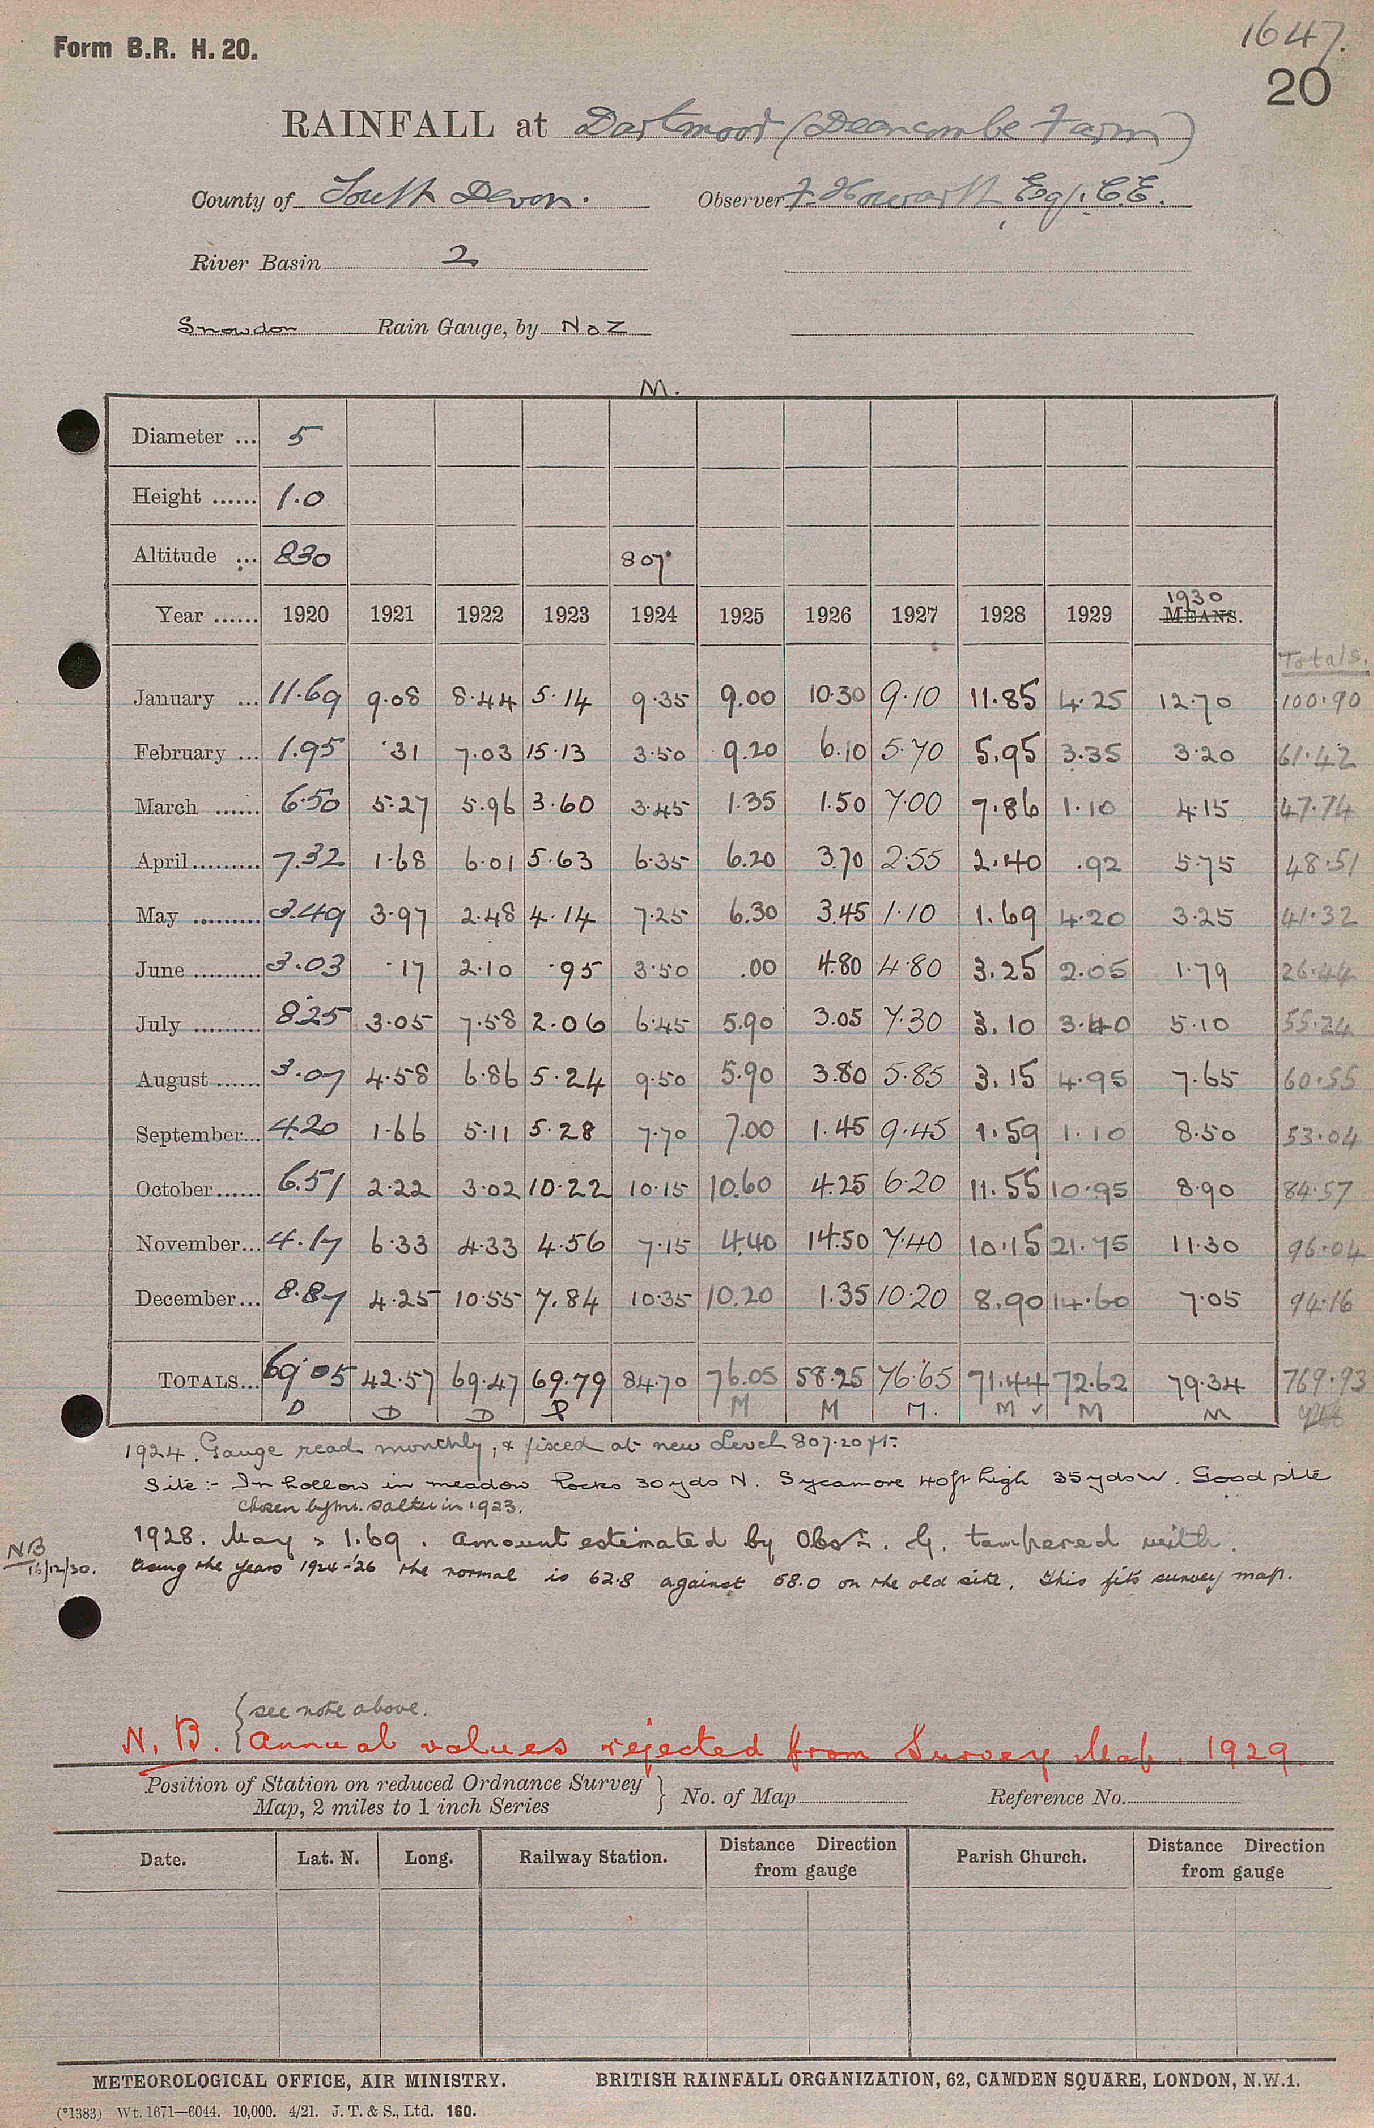 1647.
Form B.R. H. 20.
20
RAINFALL at Dartmoor (Deancombe Farm)
County of South Devon. Observer F. Howarth Esq. C.E.
River Basin 2
Snowdon Rain Gauge, by N & Z
M.
Diameter ... 5
Height ...... 1.0
Altitude ... 830 807
Year ...... 1920 1921 1922 1923 1924 1925 1926 1927 1928 1929 1930 MEANS.
Totals.
January ... 11.69 9.08 8.44 5.14 9.35 9.00 10.30 9.10 11.85 4.25 12.70 100.90
February ... 1.95 .31 7.03 15.13 3.50 9.20 6.10 5.70 5.95 3.35 3.20 61.42
March ...... 6.50 5.27 5.96 3.60 3.45 1.35 1.50 7.00 7.86 1.10 4.15 47.74
April ......... 7.32 1.68 6.01 5.63 6.35 6.20 3.70 2.55 2.40 .92 5.75 48.51
May ......... 3.49 3.97 2.48 4.14 7.25 6.30 3.45 1.10 1.69 4.20 3.25 41.32
June ......... 3.03 .17 2.10 .95 3.50 .00 4.80 4.80 3.25 2.05 1.79 26.44
July ......... 8.25 3.05 7.58 2.06 6.45 5.90 3.05 7.30 3.10 3.40 5.10 55.24
August ...... 3.07 4.58 6.86 5.24 9.50 5.90 3.80 5.85 3.15 4.95 7.65 60.55
September... 4.20 1.66 5.11 5.28 7.70 7.00 1.45 9.45 1.59 1.10 8.50 53.04
October...... 6.51 2.22 3.02 10.22 10.15 10.60 4.25 6.20 11.55 10.95 8.90 84.57
November... 4.17 6.33 4.33 4.56 7.15 4.40 14.50 7.40 10.15 21.75 11.30 96.04
December... 8.87 4.25 10.55 7.84 10.35 10.20 1.35 10.20 8.90 14.60 7.05 94.16
TOTALS... 69.05 42.57 69.47 69.79 84.70 76.05 58.25 76.65 71.44 72.62 79.34 769.93
D D D P M M M. M ✓ M M
1924. Gauge read monthly, & fixed at new level 807.20 ft.
Site :- In hollow in meadow Rocks 30 yds N. Sycamore 40 ft high 35 yds W. Good site
chosen by Mr. Salter in 1923.
1928. May > 1.69. Amount estimated by Obsr. G. tampered with.
NB 16/12/30. Using the years 1924-'26 the normal is 62.8 against 58.0 on the old site. This fits survey map.
{see note above.
N.B. {Annual values rejected from Survey Map. 1929
Position of Station on reduced Ordnance Survey
Map, 2 miles to 1 inch Series } No. of Map Reference No.
Date. Lat. N. Long. Railway Station. Distance Direction from gauge Parish Church. Distance Direction from gauge
METEOROLOGICAL OFFICE, AIR MINISTRY. BRITISH RAINFALL ORGANIZATION, 62, CAMDEN SQUARE, LONDON, N.W.1.
(*1383) Wt. 1671—6044. 10,000. 4/21. J. T. & S., Ltd. 160.